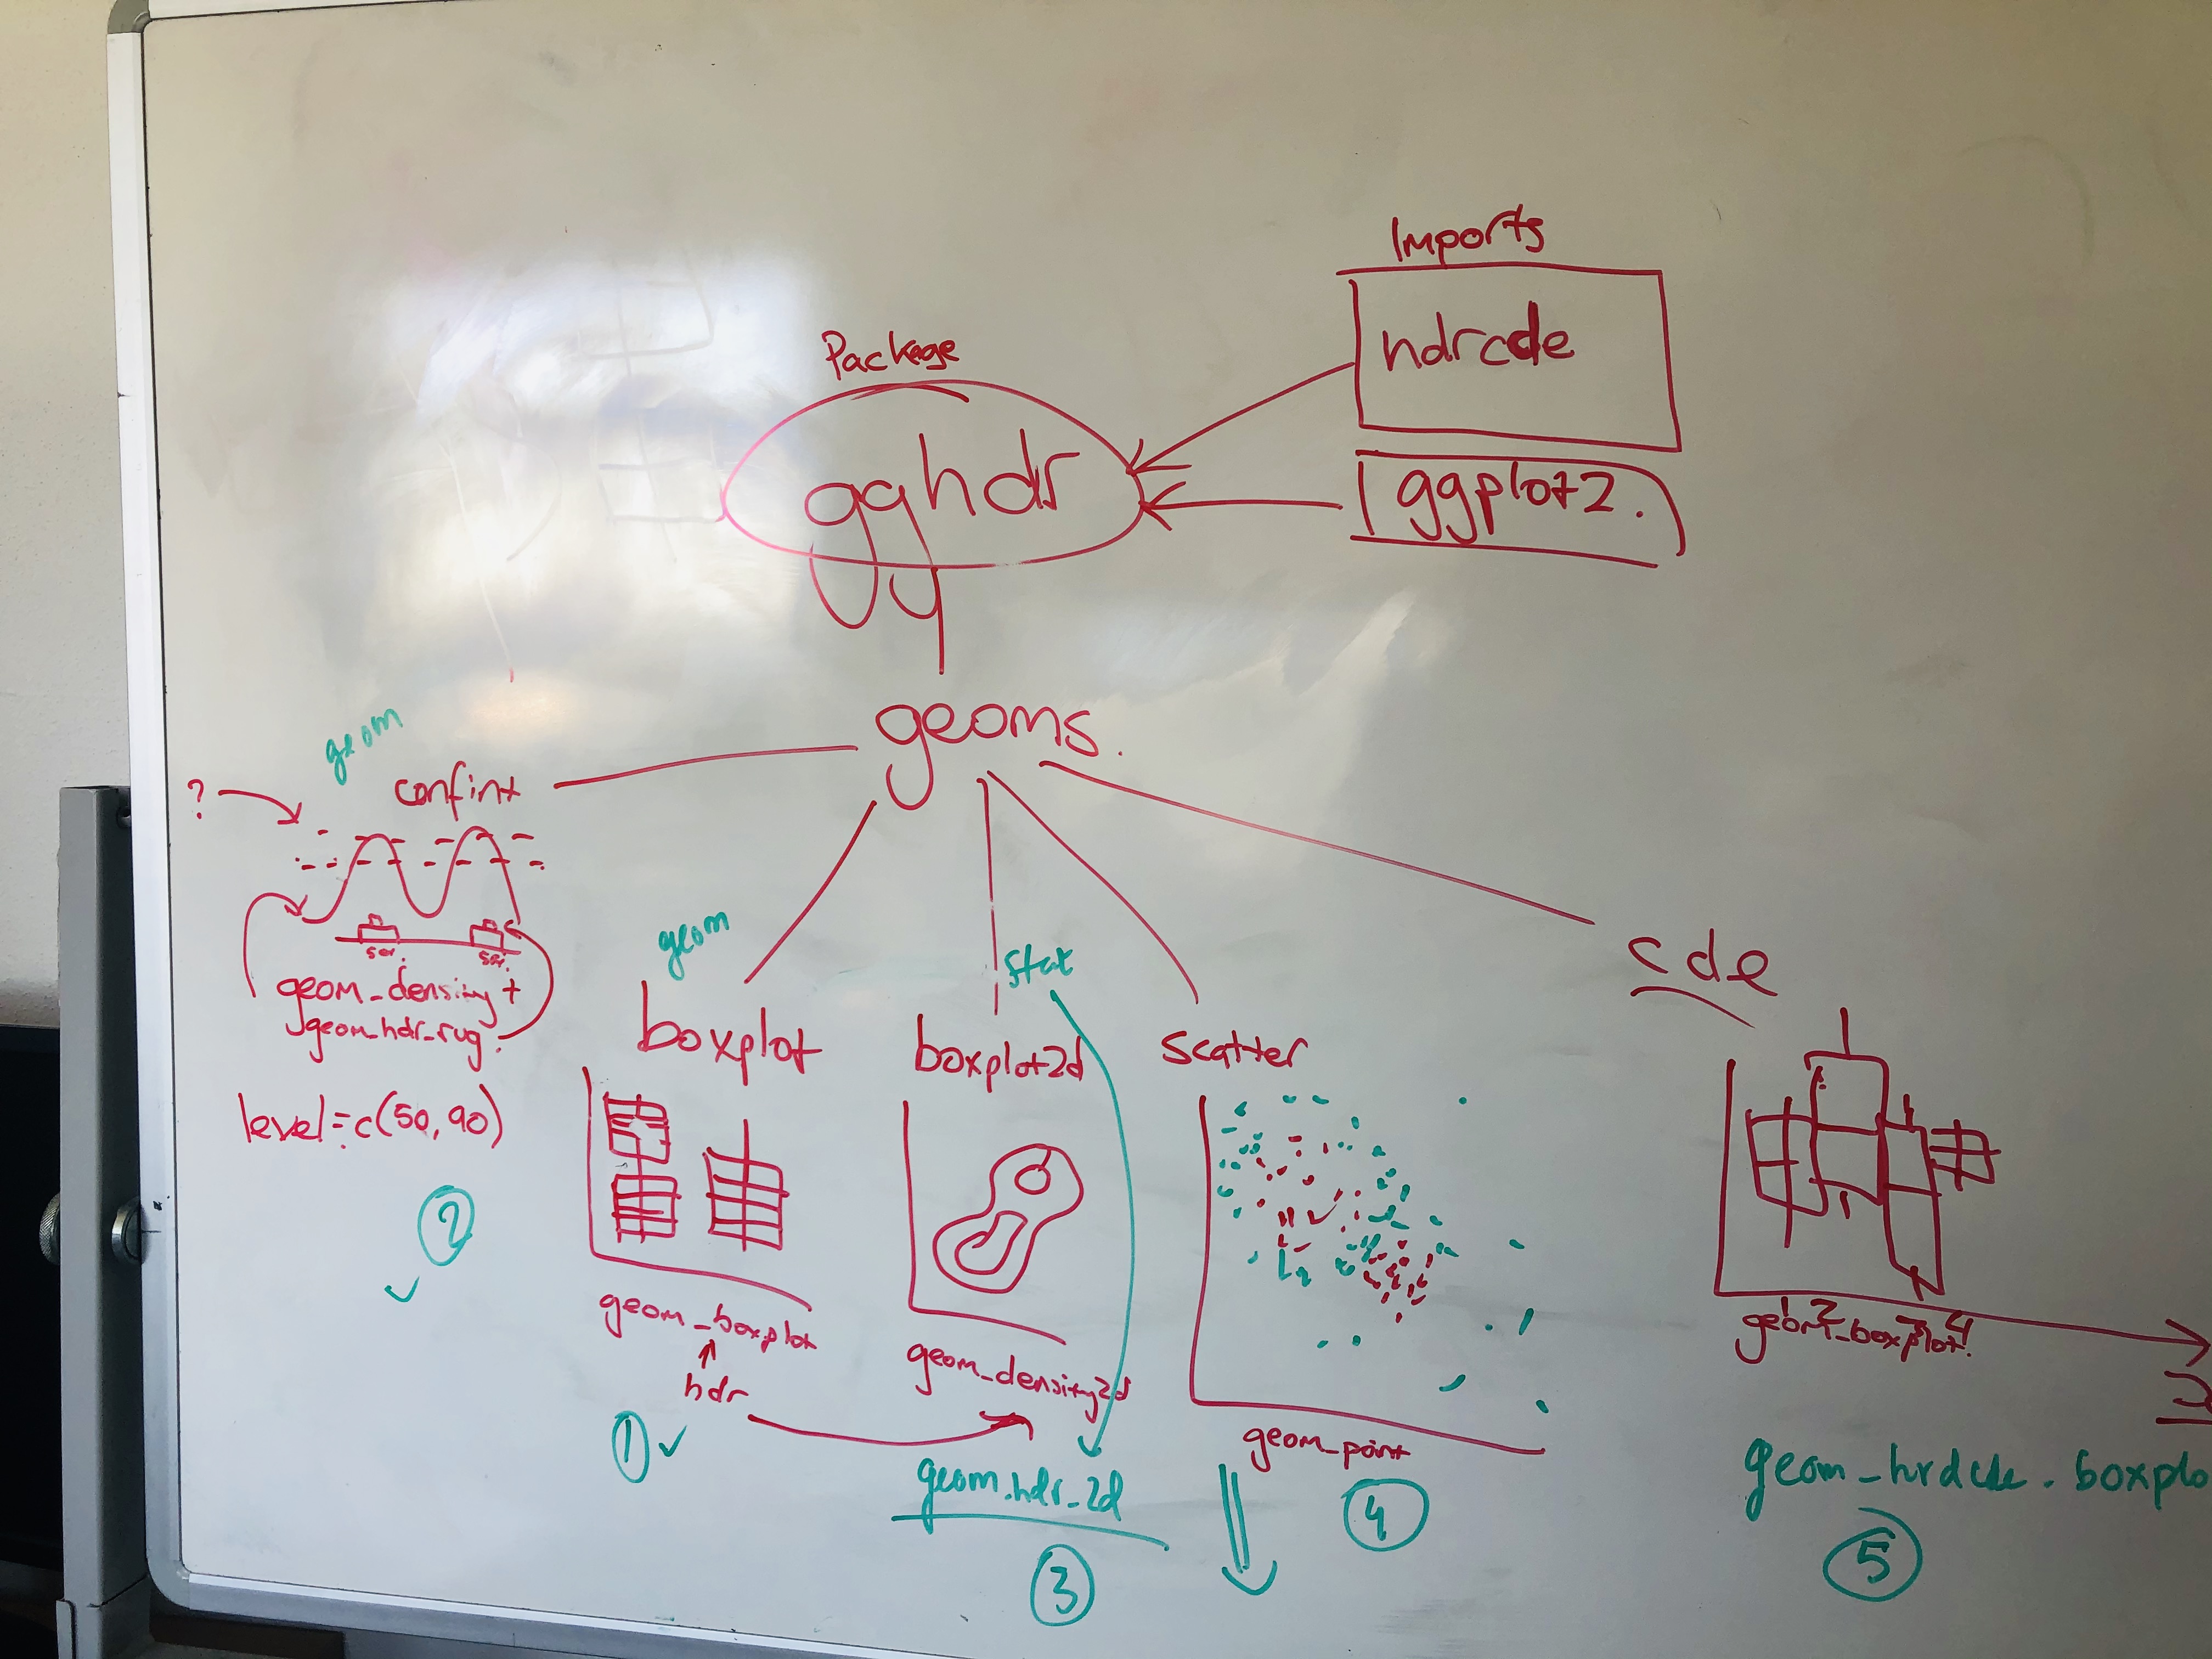 Imports
hdrcde
ggplot2.
Package
gghdr
geoms.
geom
confint
?
geom_density +
geom_hdr_rug
level = c(50, 90)
2
geom
boxplot
geom_boxplot
hdr
1
stat
boxplot2d
geom_density2d
geom.hdr_2d
3
scatter
geom_point
4
cde
1 2 3 4
geom_boxplot.
geom_hrdcde.boxplo
5